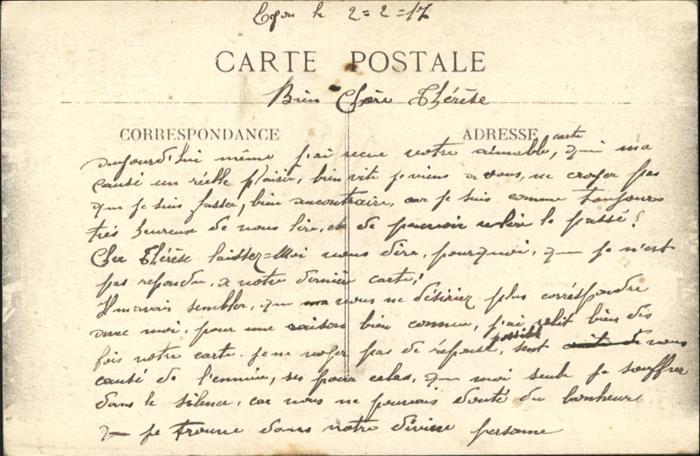 Lyon le 2=2=17
CARTE POSTALE
Bien Chère Thérèse
CORRESPONDANCE
ADRESSE
aujourd'hui même j'ai recue votre aimable, carte qui ma
causé un réelle plaisir, bien vite je viens a vous, ne croyer pas
que je suis fasser, bien aucontraire, car je suis comme toujours
très heureuse de vous lire, et de pouvoir relire le passé!
Cher Thérèse laissez=Moi vous dire, pourquoi, que je n'est
pas repondu, a votre dernière carte,!
Il mavais sembler, que vous ne désiriez plus corréspondre
avec moi, pour une raison bien connue, j'ai relit bien des
fois votre carte. je ne pas de réponse, possible sent de vous
causé de l'ennuie, ses pour celas, que moi seule je souffrer
dans le silence, car vous ne pouvais douté du bonheur
que je trouve dans votre divine personne